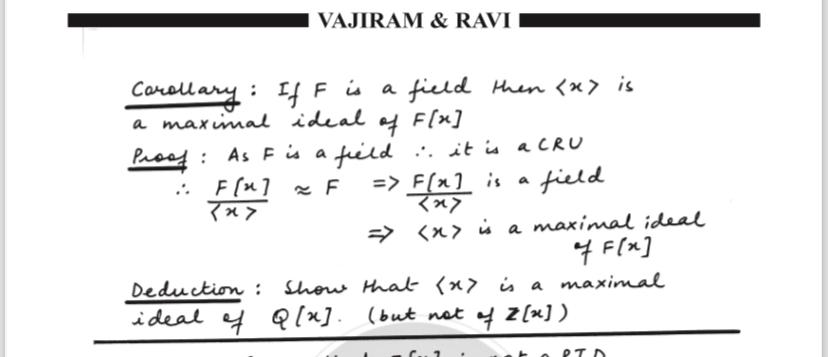 VAJIRAM & RAVI
Corollary : If F is a field then <x> is
a maximal ideal of F[x]
Proof : As F is a field ∴ it is a CRU
∴ F[x]/<x> ≈ F => F[x]/<x> is a field
=> <x> is a maximal ideal
of F[x]
Deduction : Show that <x> is a maximal
ideal of Q[x]. (but not of Z[x])